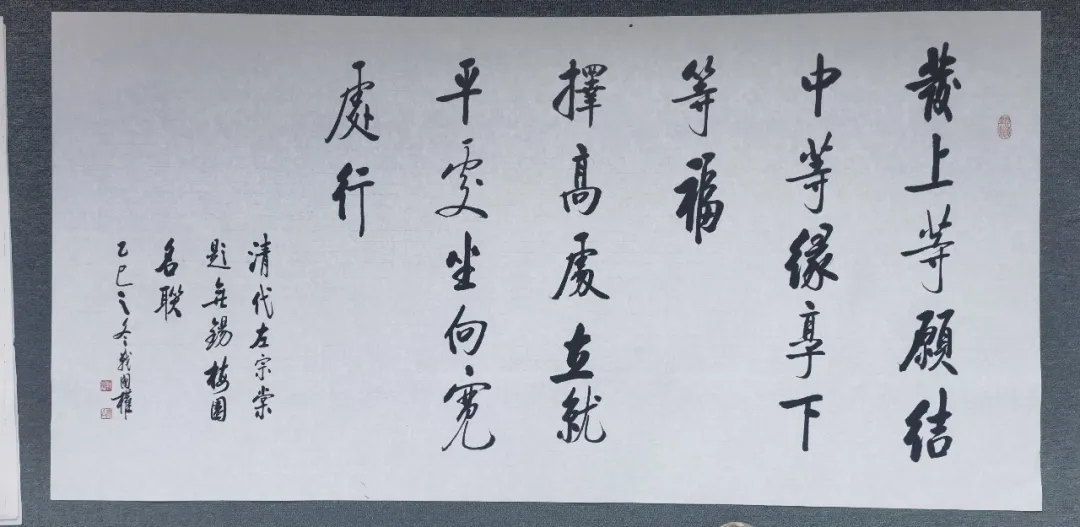 發上等願結
中等緣享下
等福
擇高處立就
平處坐向寬
處行
清代左宗棠
題無錫梅園
名联
乙巳之冬戴国權